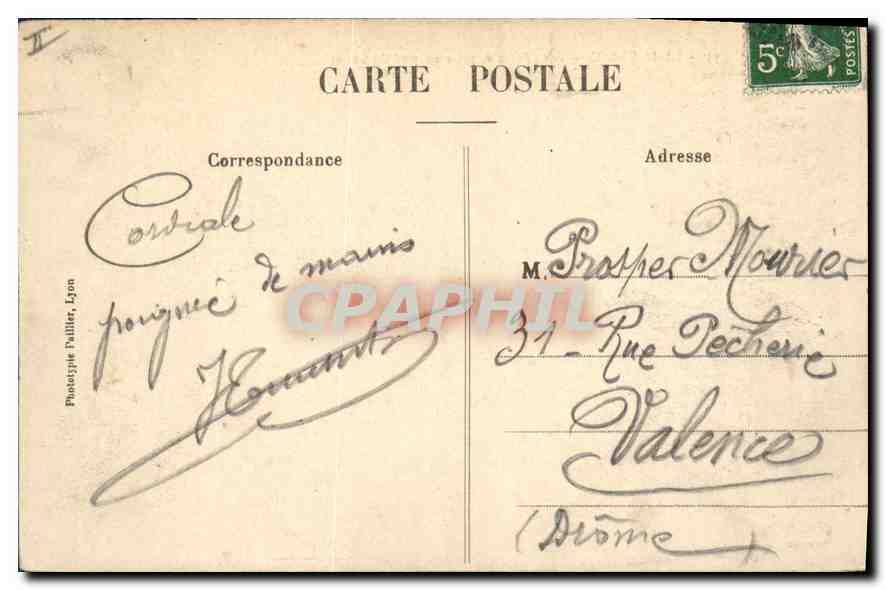 II
5c
POSTES
CARTE POSTALE
Correspondance
Adresse
Cordiale
poignée de mains
M. Prosper Mourier
31 - Rue Pécherie
Valence
(Drôme)
Phototypie Paillier, Lyon
CPAPHIL